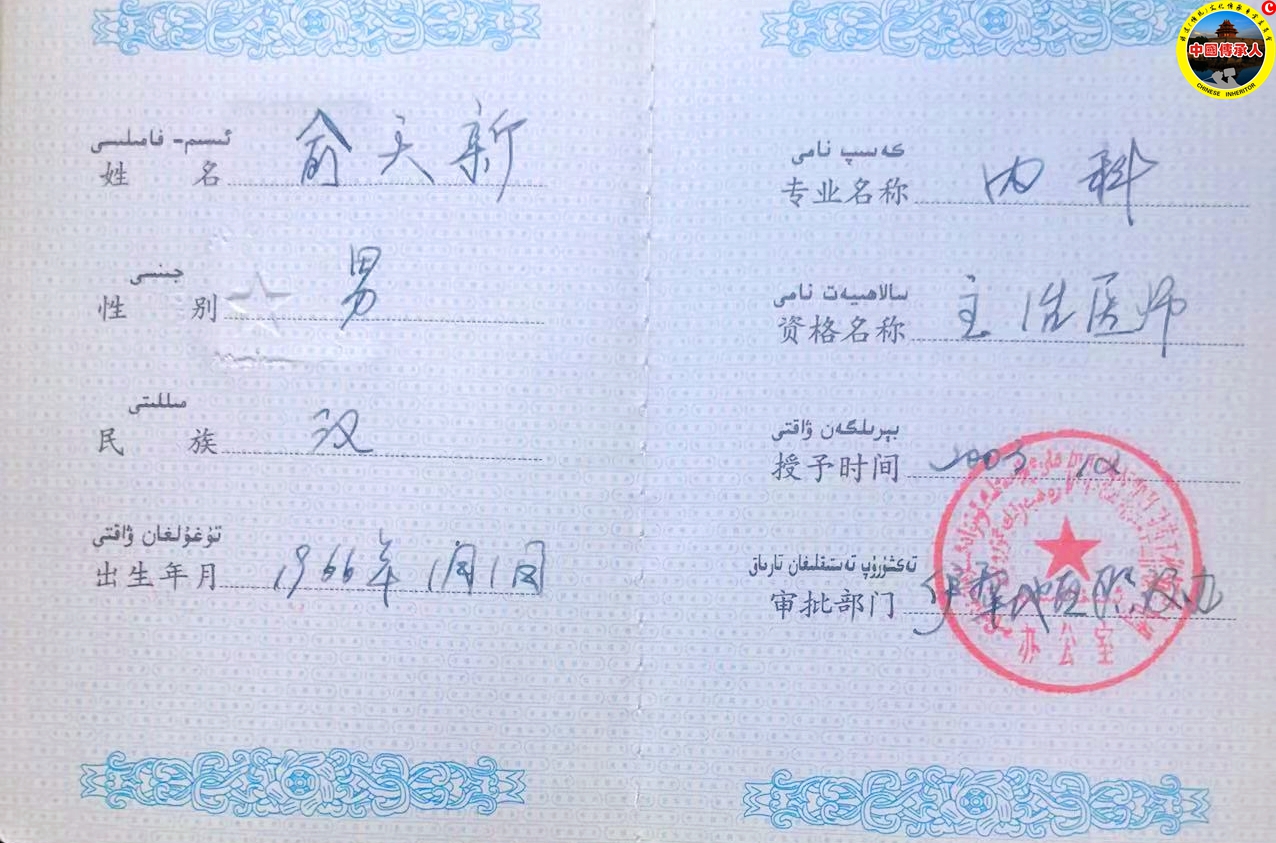 ئىسىم- فامىلىسى
姓 名 俞天新
جىنسى
性 别 男
مىللىتى
民 族 汉
تۇغۇلغان ۋاقتى
出生年月 1966年1月1日
كەسىپ نامى
专业名称 内科
سالاھىيەت نامى
资格名称 主治医师
بېرىلگەن ۋاقتى
授予时间 2003 12
تەكشۈرۈپ تەستىقلىغان تارماق
审批部门 伊犁地区职改办
办公室
中國傳承人
CHINESE INHERITOR
C